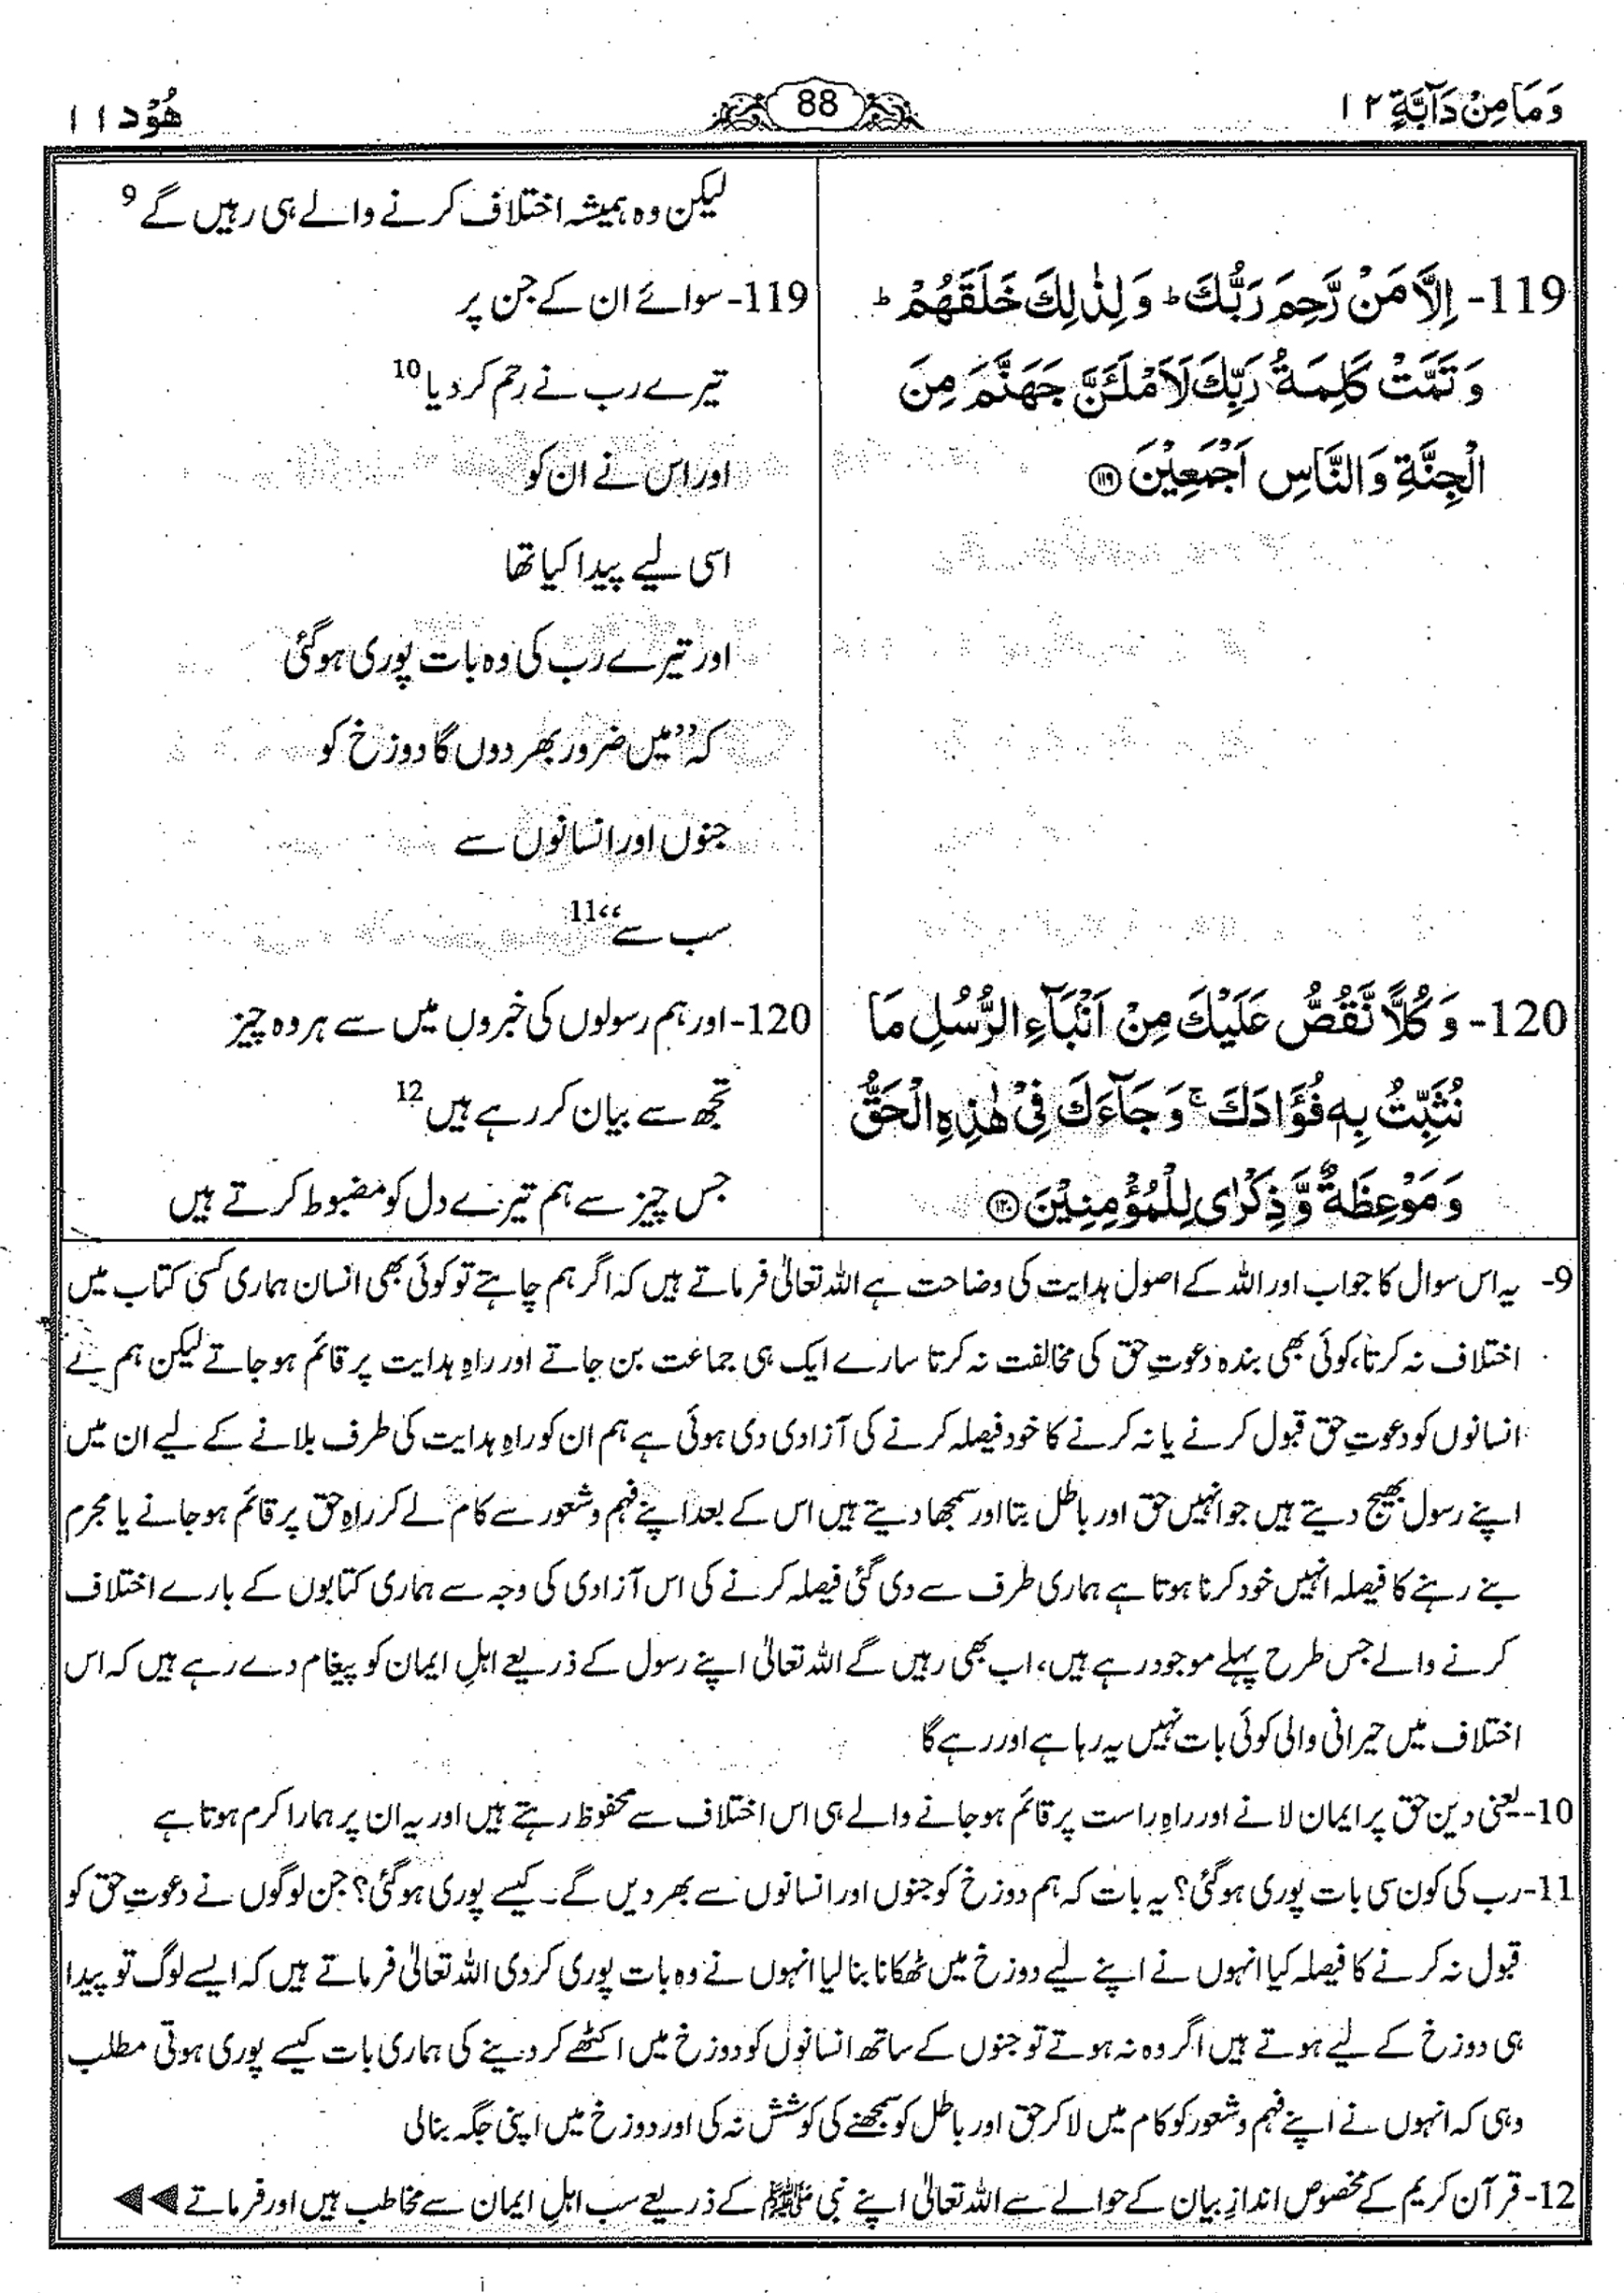 وَمَا مِنْ دَآبَّةٍ ١٢
88
هُوْد ١١
119- اِلَّا مَنْ رَّحِمَ رَبُّكَ ؕ وَ لِذٰلِكَ خَلَقَهُمْ ؕ
وَ تَمَّتْ كَلِمَةُ رَبِّكَ لَاَمْلَـَٔنَّ جَهَنَّمَ مِنَ
الْجِنَّةِ وَ النَّاسِ اَجْمَعِيْنَ ﴿۱۱۹﴾
120- وَ كُلًّا نَّقُصُّ عَلَيْكَ مِنْ اَنْۢبَآءِ الرُّسُلِ مَا
نُثَبِّتُ بِهٖ فُؤَادَكَ ۚ وَ جَآءَكَ فِيْ هٰذِهِ الْحَقُّ
وَ مَوْعِظَةٌ وَّ ذِكْرٰى لِلْمُؤْمِنِيْنَ ﴿۱۲۰﴾
لیکن وہ ہمیشہ اختلاف کرنے والے ہی رہیں گے 9
119- سوائے ان کے جن پر
تیرے رب نے رحم کر دیا 10
اور اس نے ان کو
اسی لیے پیدا کیا تھا
اور تیرے رب کی وہ بات پوری ہو گئی
کہ ’’میں ضرور بھر دوں گا دوزخ کو
جنوں اور انسانوں سے
سب سے‘‘ 11
120- اور ہم رسولوں کی خبروں میں سے ہر وہ چیز
تجھ سے بیان کر رہے ہیں 12
جس چیز سے ہم تیرے دل کو مضبوط کرتے ہیں
9- یہ اس سوال کا جواب اور اللہ کے اصول ہدایت کی وضاحت ہے اللہ تعالیٰ فرماتے ہیں کہ اگر ہم چاہتے تو کوئی بھی انسان ہماری کسی کتاب میں
اختلاف نہ کرتا، کوئی بھی بندہ دعوتِ حق کی مخالفت نہ کرتا سارے ایک ہی جماعت بن جاتے اور راہِ ہدایت پر قائم ہو جاتے لیکن ہم نے
انسانوں کو دعوتِ حق قبول کرنے یا نہ کرنے کا خود فیصلہ کرنے کی آزادی دی ہوئی ہے ہم ان کو راہِ ہدایت کی طرف بلانے کے لیے ان میں
اپنے رسول بھیج دیتے ہیں جو انہیں حق اور باطل بتا اور سمجھا دیتے ہیں اس کے بعد اپنے فہم و شعور سے کام لے کر راہِ حق پر قائم ہو جانے یا مجرم
بنے رہنے کا فیصلہ انہیں خود کرنا ہوتا ہے ہماری طرف سے دی گئی فیصلہ کرنے کی اس آزادی کی وجہ سے ہماری کتابوں کے بارے اختلاف
کرنے والے جس طرح پہلے موجود رہے ہیں، اب بھی رہیں گے اللہ تعالیٰ اپنے رسول کے ذریعے اہلِ ایمان کو پیغام دے رہے ہیں کہ اس
اختلاف میں حیرانی والی کوئی بات نہیں یہ رہا ہے اور رہے گا
10- یعنی دین حق پر ایمان لانے اور راہِ راست پر قائم ہو جانے والے ہی اس اختلاف سے محفوظ رہتے ہیں اور یہ ان پر ہمارا کرم ہوتا ہے
11- رب کی کون سی بات پوری ہو گئی؟ یہ بات کہ ہم دوزخ کو جنوں اور انسانوں سے بھر دیں گے۔ کیسے پوری ہو گئی؟ جن لوگوں نے دعوتِ حق کو
قبول نہ کرنے کا فیصلہ کیا انہوں نے اپنے لیے دوزخ میں ٹھکانا بنا لیا انہوں نے وہ بات پوری کر دی اللہ تعالیٰ فرماتے ہیں کہ ایسے لوگ تو پیدا
ہی دوزخ کے لیے ہوتے ہیں اگر وہ نہ ہوتے تو جنوں کے ساتھ انسانوں کو دوزخ میں اکٹھے کر دینے کی ہماری بات کیسے پوری ہوتی مطلب
وہی کہ انہوں نے اپنے فہم و شعور کو کام میں لا کر حق اور باطل کو سمجھنے کی کوشش نہ کی اور دوزخ میں اپنی جگہ بنا لی
12- قرآن کریم کے مخصوص اندازِ بیان کے حوالے سے اللہ تعالیٰ اپنے نبی ﷺ کے ذریعے سب اہلِ ایمان سے مخاطب ہیں اور فرماتے ◄◄